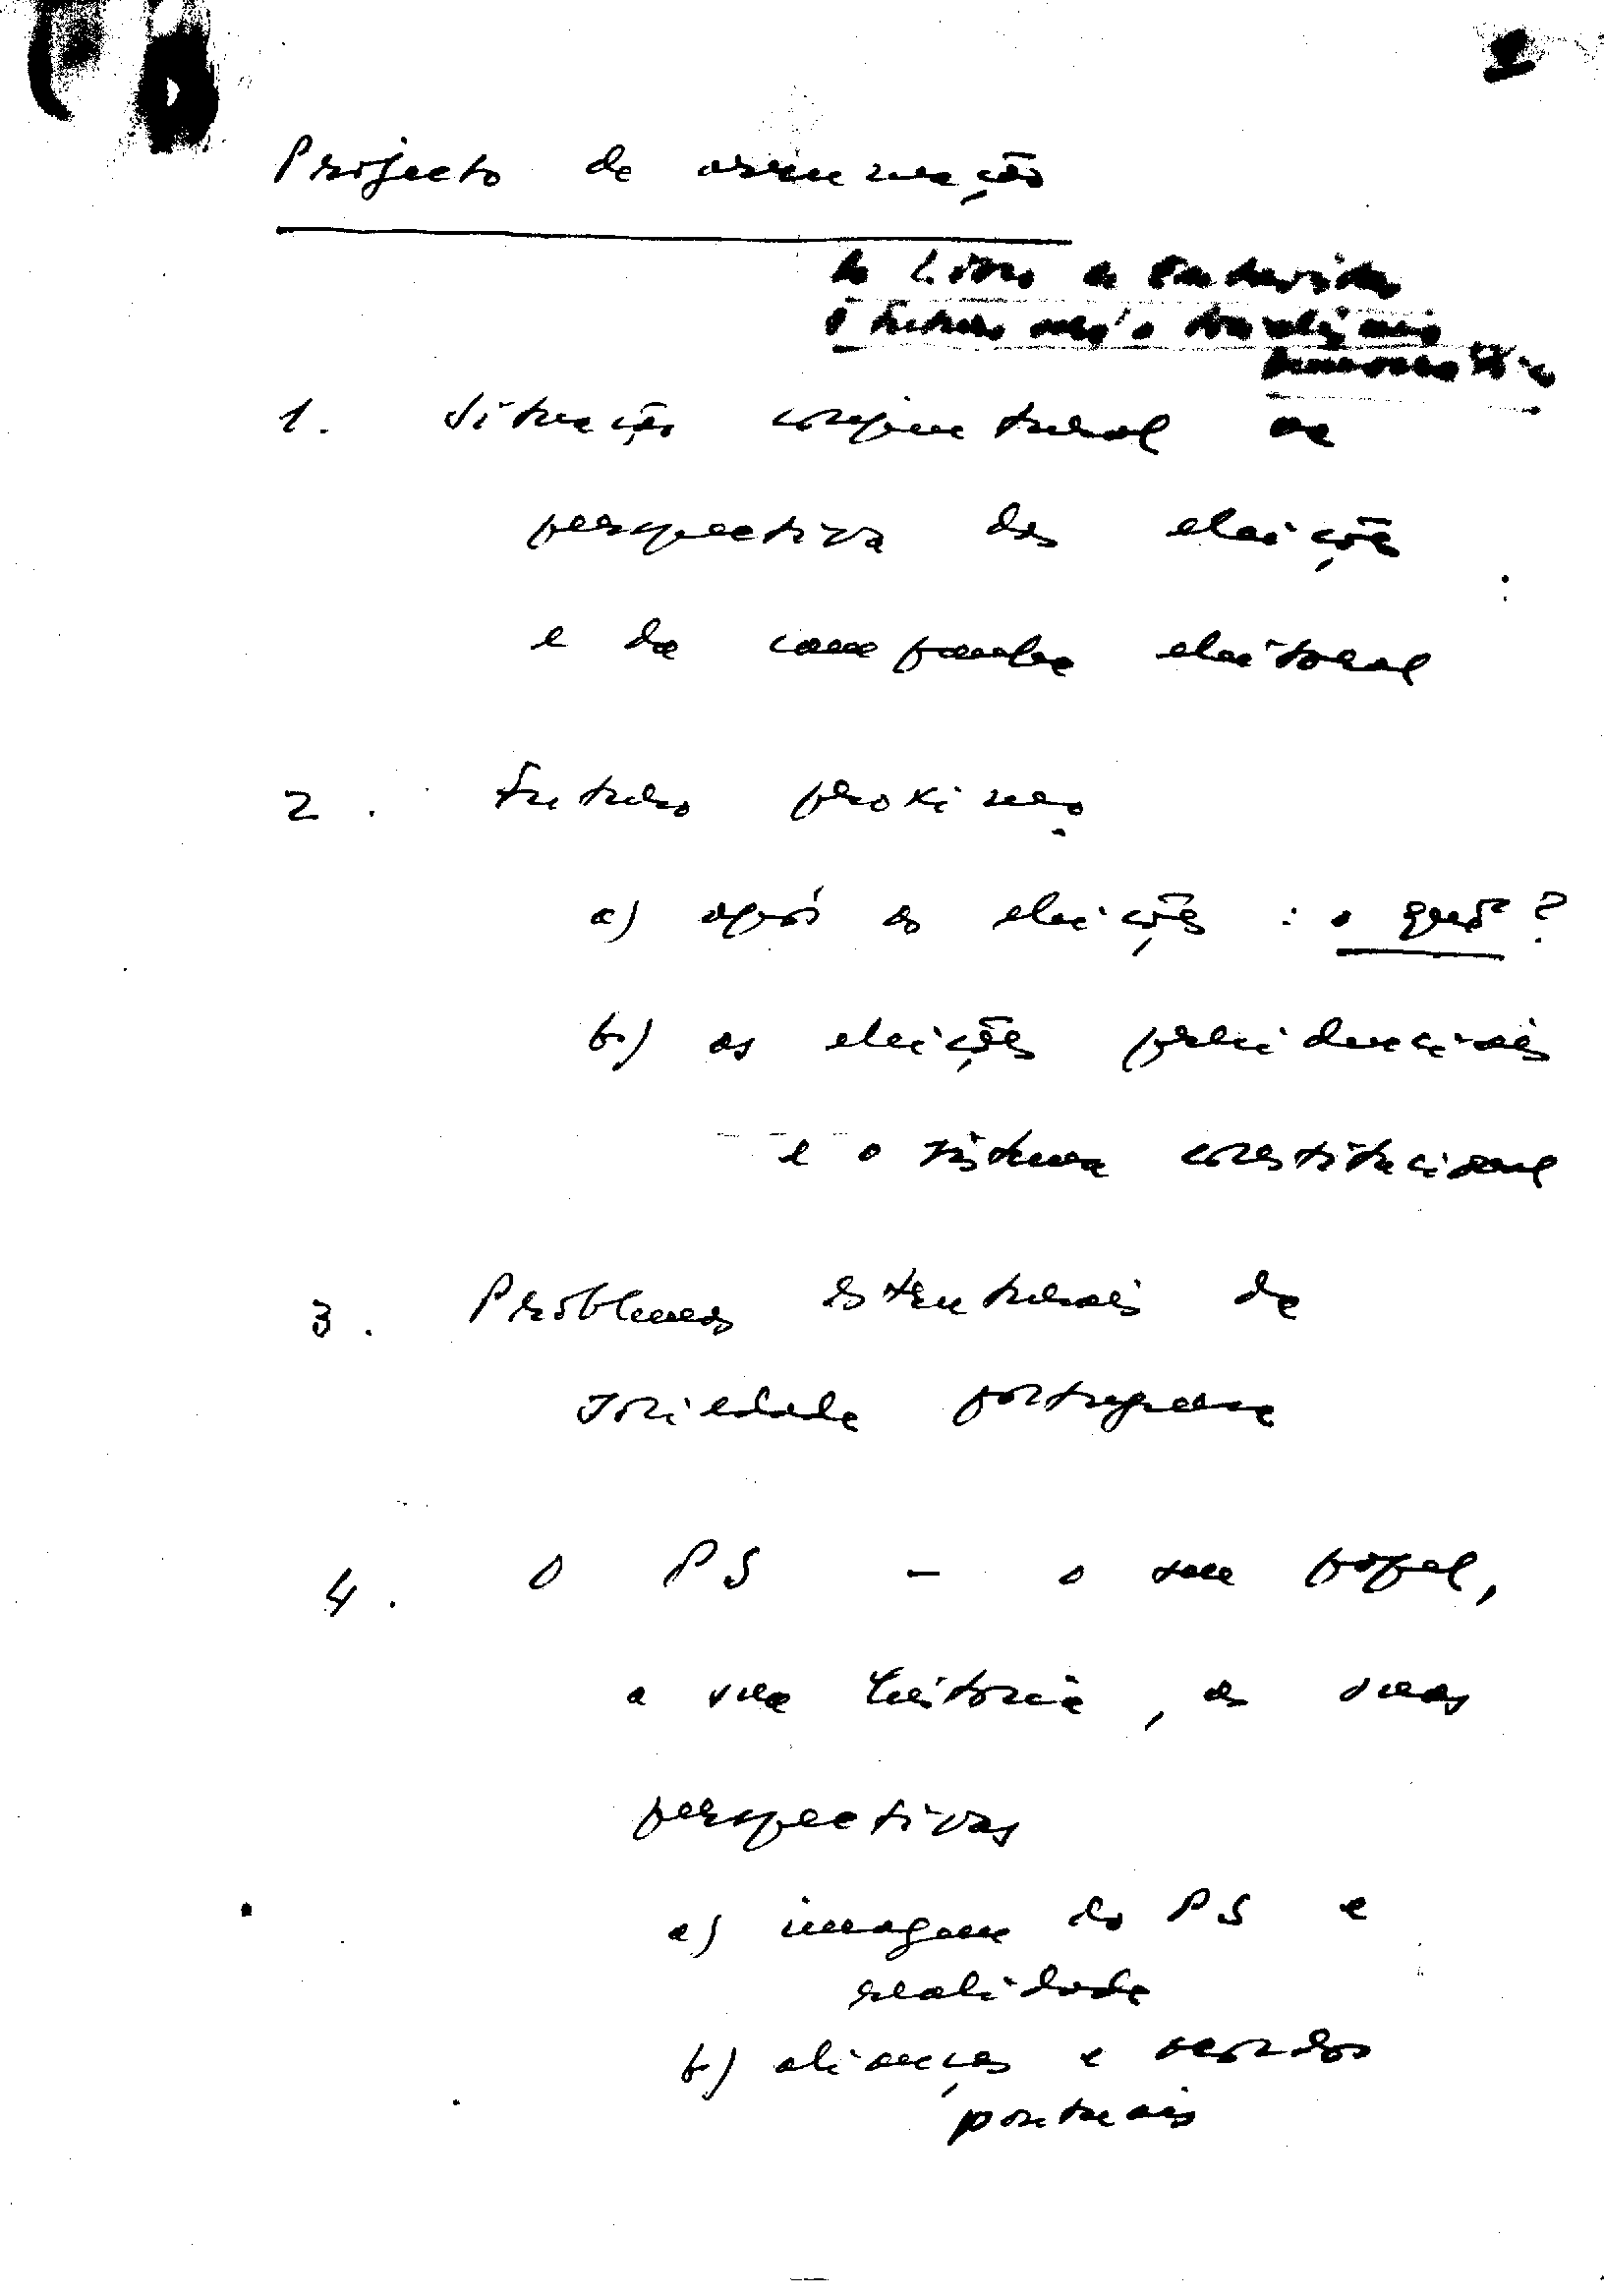 Projecto de arrumação
do livro de Entrevistas
O futuro será o socialismo
democrático
1. Situação conjuntural na
perspectiva das eleições
e da campanha eleitoral
2. Futuro proximo
a) após as eleições : o quê ?
b) as eleições presidenciais
e o sistema constitucional
3. Problemas estruturais da
sociedade portuguesa
4. O PS - o seu papel,
a sua história, as suas
perspectivas
a) imagem do PS e
realidade
b) alianças e acordos
pontuais